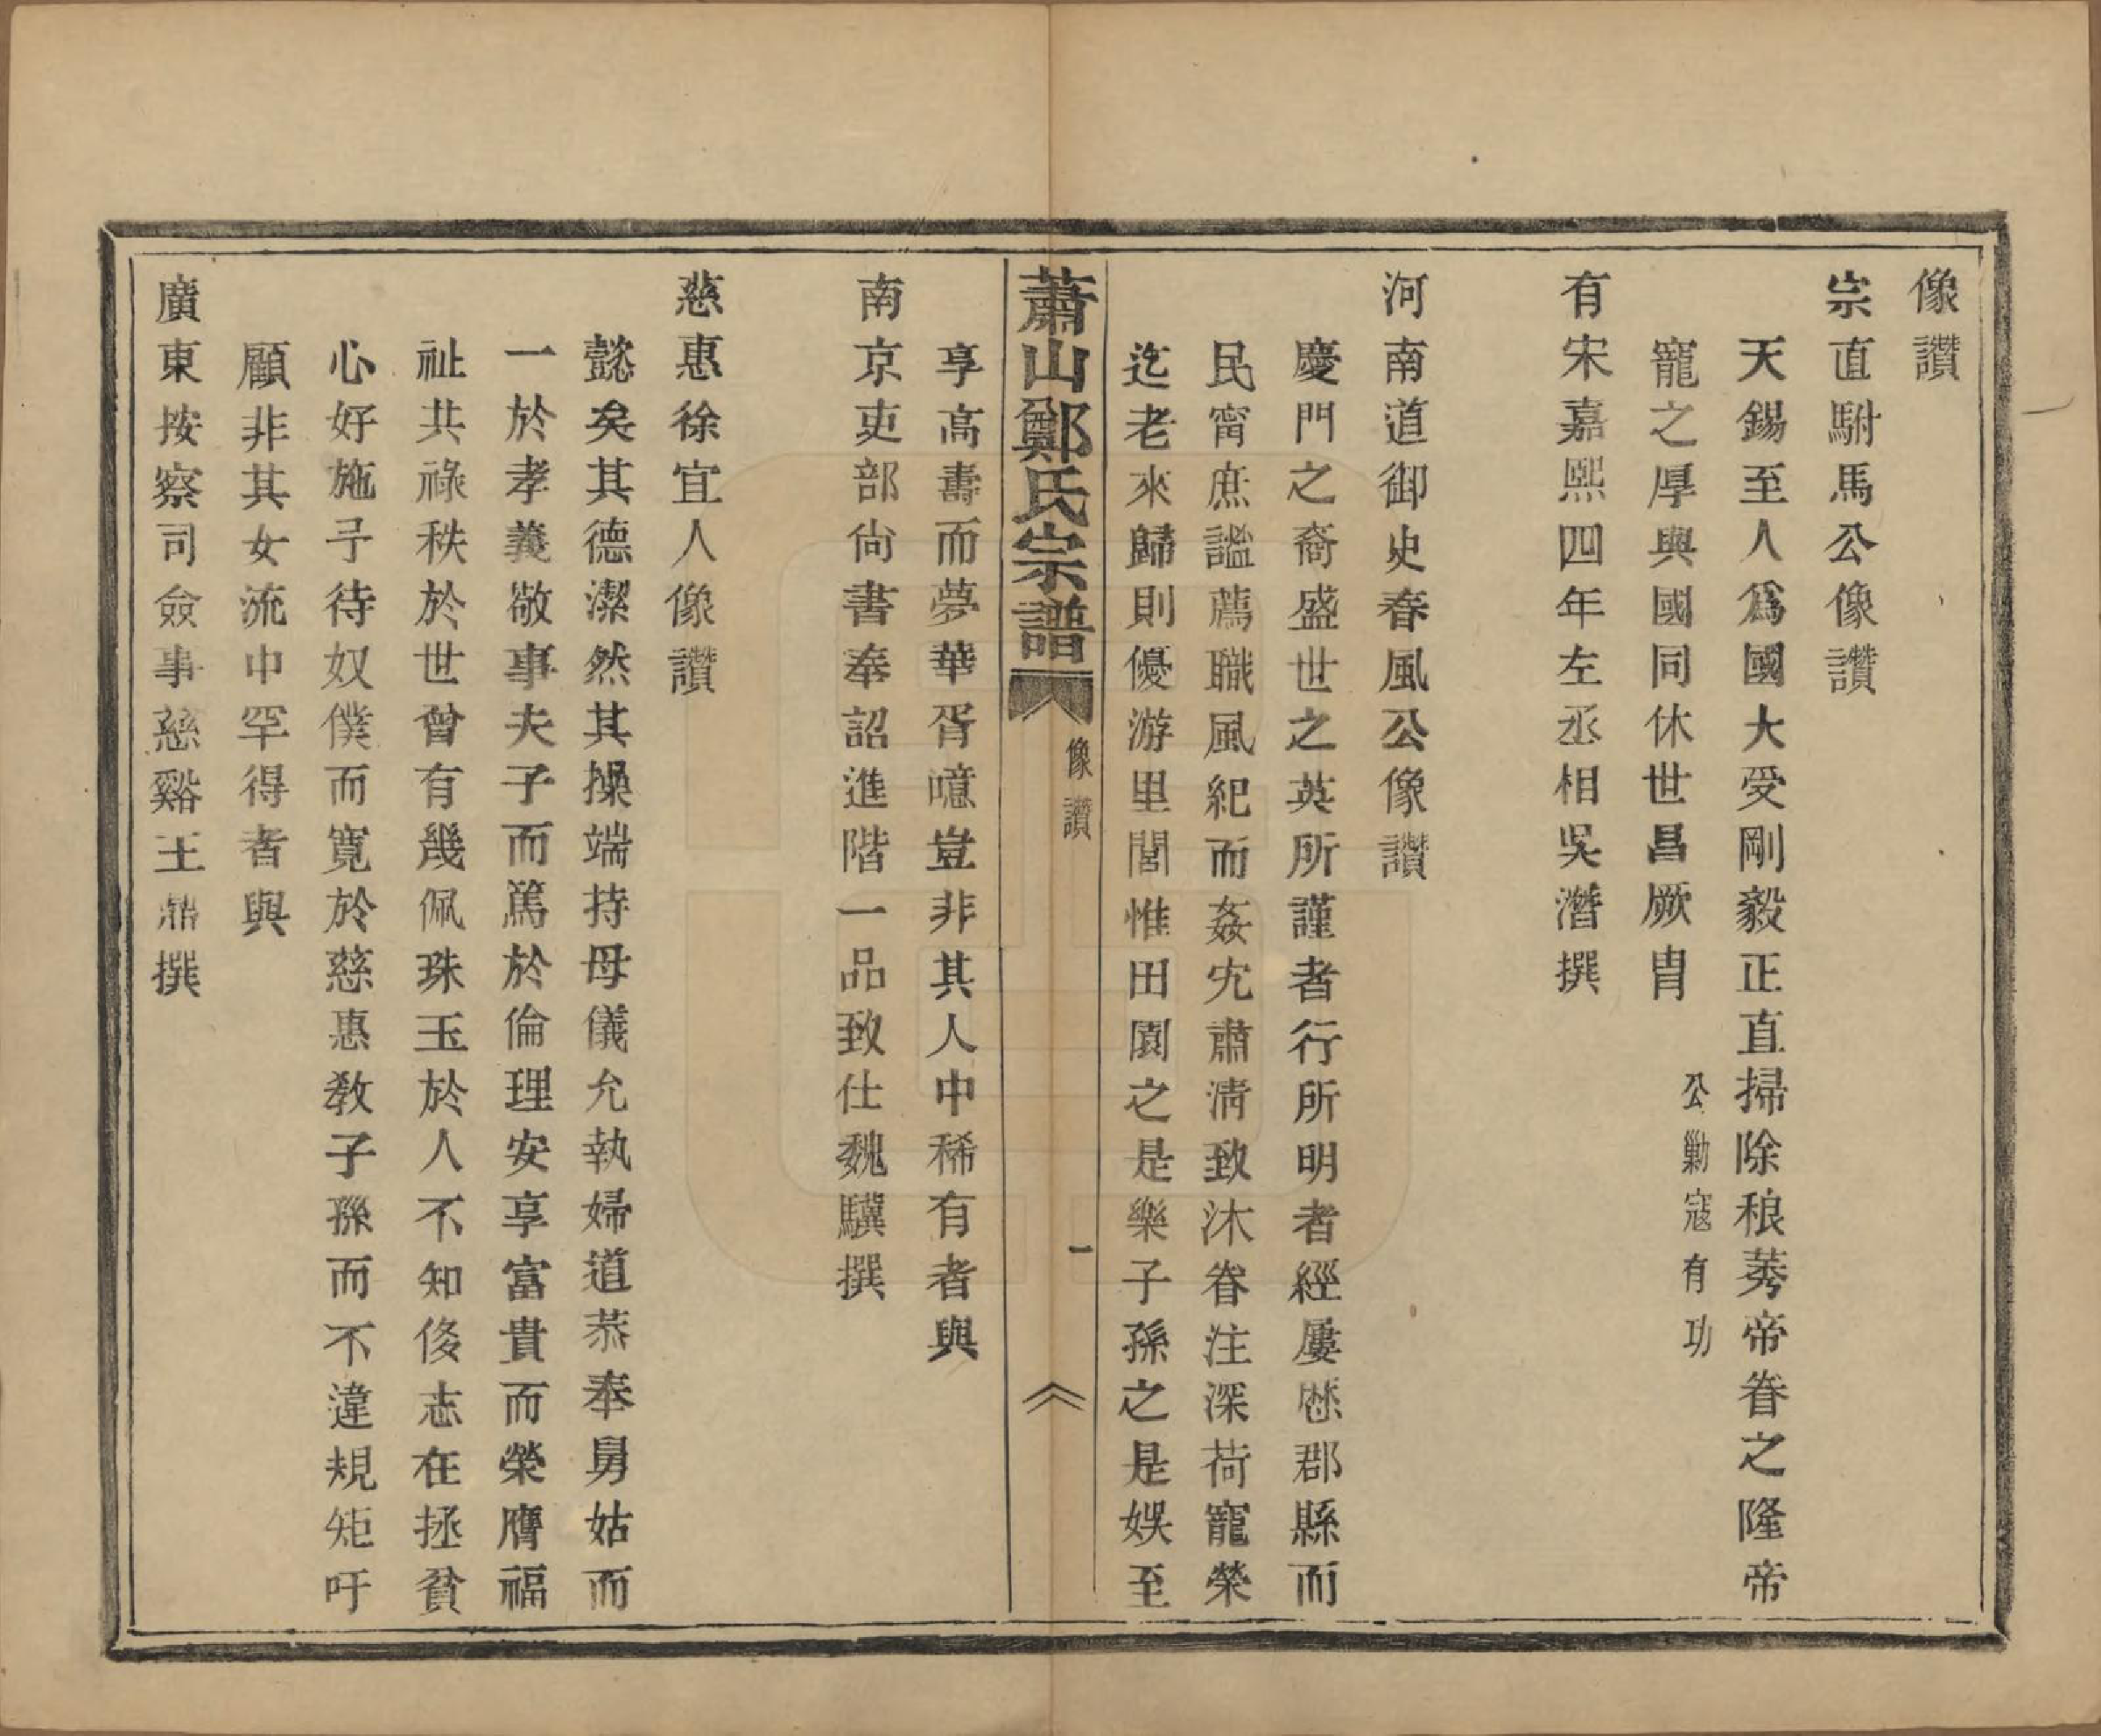 像讚
宗直駙馬公像讚
天錫至人爲國大受剛毅正直掃除稂莠帝眷之隆帝
寵之厚與國同休世昌厥胄
公勦寇有功
有宋嘉熙四年左丞相吳潛撰
河南道御史春風公像讚
慶門之裔盛世之英所謹者行所明者經屢歷郡縣而
民甯庶謐薦職風紀而姦宄肅淸致沐眷注深荷寵榮
迄老來歸則優游里閭惟田園之是樂子孫之是娛至
蕭山鄭氏宗譜
像讚
一
享高壽而夢華胥噫豈非其人中稀有者與
南京吏部尙書奉詔進階一品致仕魏驥撰
慈惠徐宜人像讚
懿矣其德潔然其操端持母儀允執婦道恭奉舅姑而
一於孝義敬事夫子而篤於倫理安享富貴而榮膺福
祉共祿秩於世曾有幾佩珠玉於人不知侈志在拯貧
心好施予待奴僕而寬於慈惠教子孫而不違規矩吁
顧非其女流中罕得者與
廣東按察司僉事慈谿王鼎撰